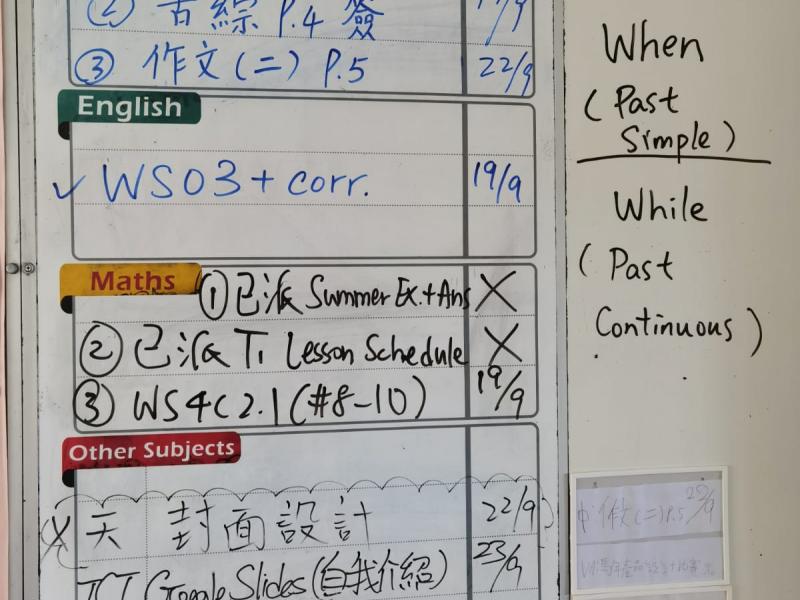 ② 古綜 P.4 簽
③ 作文(二) P.5 22/9
English
✓ WS03 + corr. 19/9
Maths
① 已派 Summer Ex. + Ans X
② 已派 T1 Lesson Schedule X
③ WS4C2.1 (#8-10) 19/9
Other Subjects
天 封面設計 22/9
ICT Google Slides (自我介紹) 23/9
When
(Past
Simple)
While
(Past
Continuous)
中作文(二)P.5 22/9